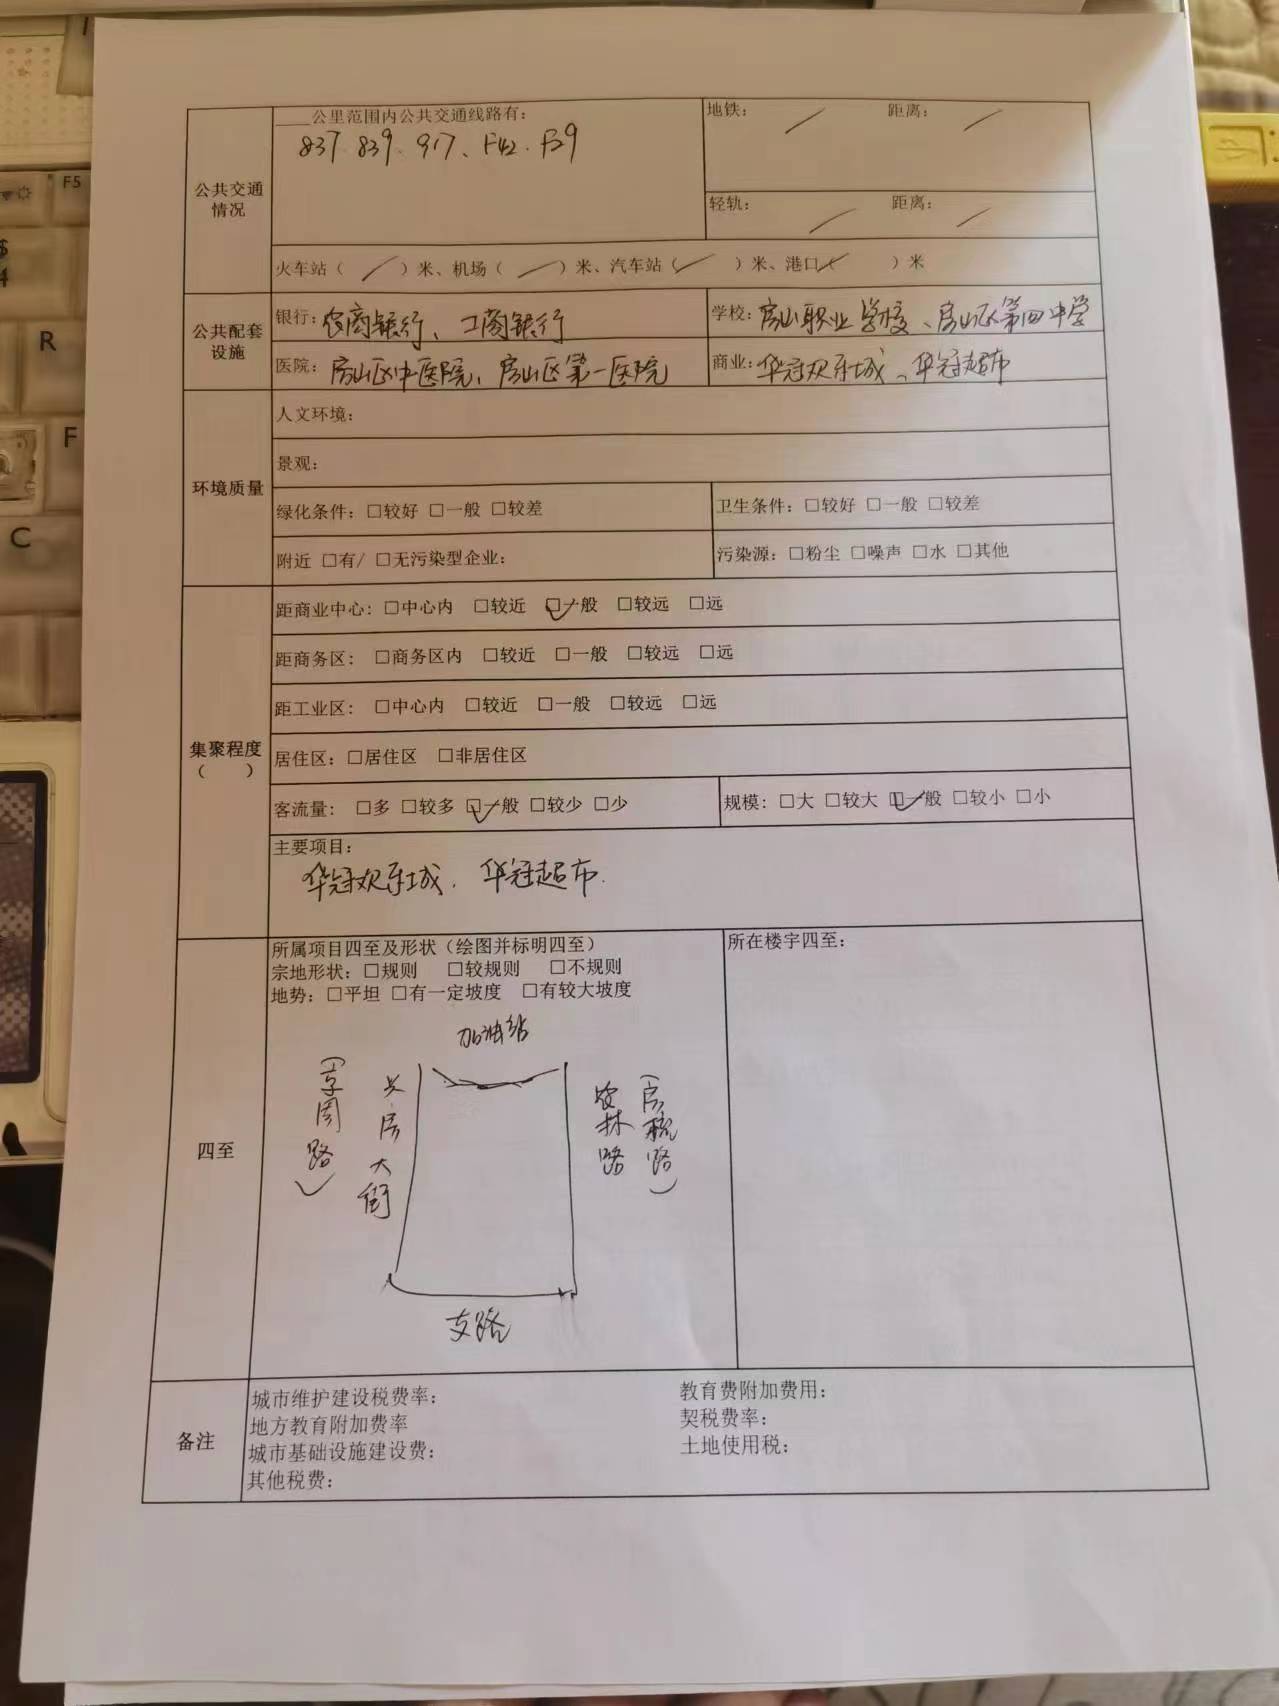 ____公里范围内公共交通线路有:
837.839、917、F42.F29
地铁: / 距离: /
公共交通情况
轻轨: / 距离: /
火车站( / )米、机场( / )米、汽车站( / )米、港口( / )米
公共配套设施
银行:农商银行、工商银行
学校:房山职业学校、房山区第四中学
医院:房山区中医院、房山区第一医院
商业:华冠欢乐城、华冠超市
环境质量
人文环境:
景观:
绿化条件:□较好 □一般 □较差
卫生条件:□较好 □一般 □较差
附近 □有/ □无污染型企业:
污染源:□粉尘 □噪声 □水 □其他
集聚程度
( )
距商业中心:□中心内 □较近 ☑一般 □较远 □远
距商务区: □商务区内 □较近 □一般 □较远 □远
距工业区: □中心内 □较近 □一般 □较远 □远
居住区:□居住区 □非居住区
客流量: □多 □较多 ☑一般 □较少 □少
规模:□大 □较大 ☑一般 □较小 □小
主要项目:
华冠欢乐城. 华冠超市.
四至
所属项目四至及形状(绘图并标明四至)
宗地形状:□规则 □较规则 □不规则
地势:□平坦 □有一定坡度 □有较大坡度
所在楼宇四至:
加油站
房大街
农林路
支路
备注
城市维护建设税费率:
教育费附加费用:
地方教育附加费率
契税费率:
城市基础设施建设费:
土地使用税:
其他税费:
F5
$
4
R
F
C